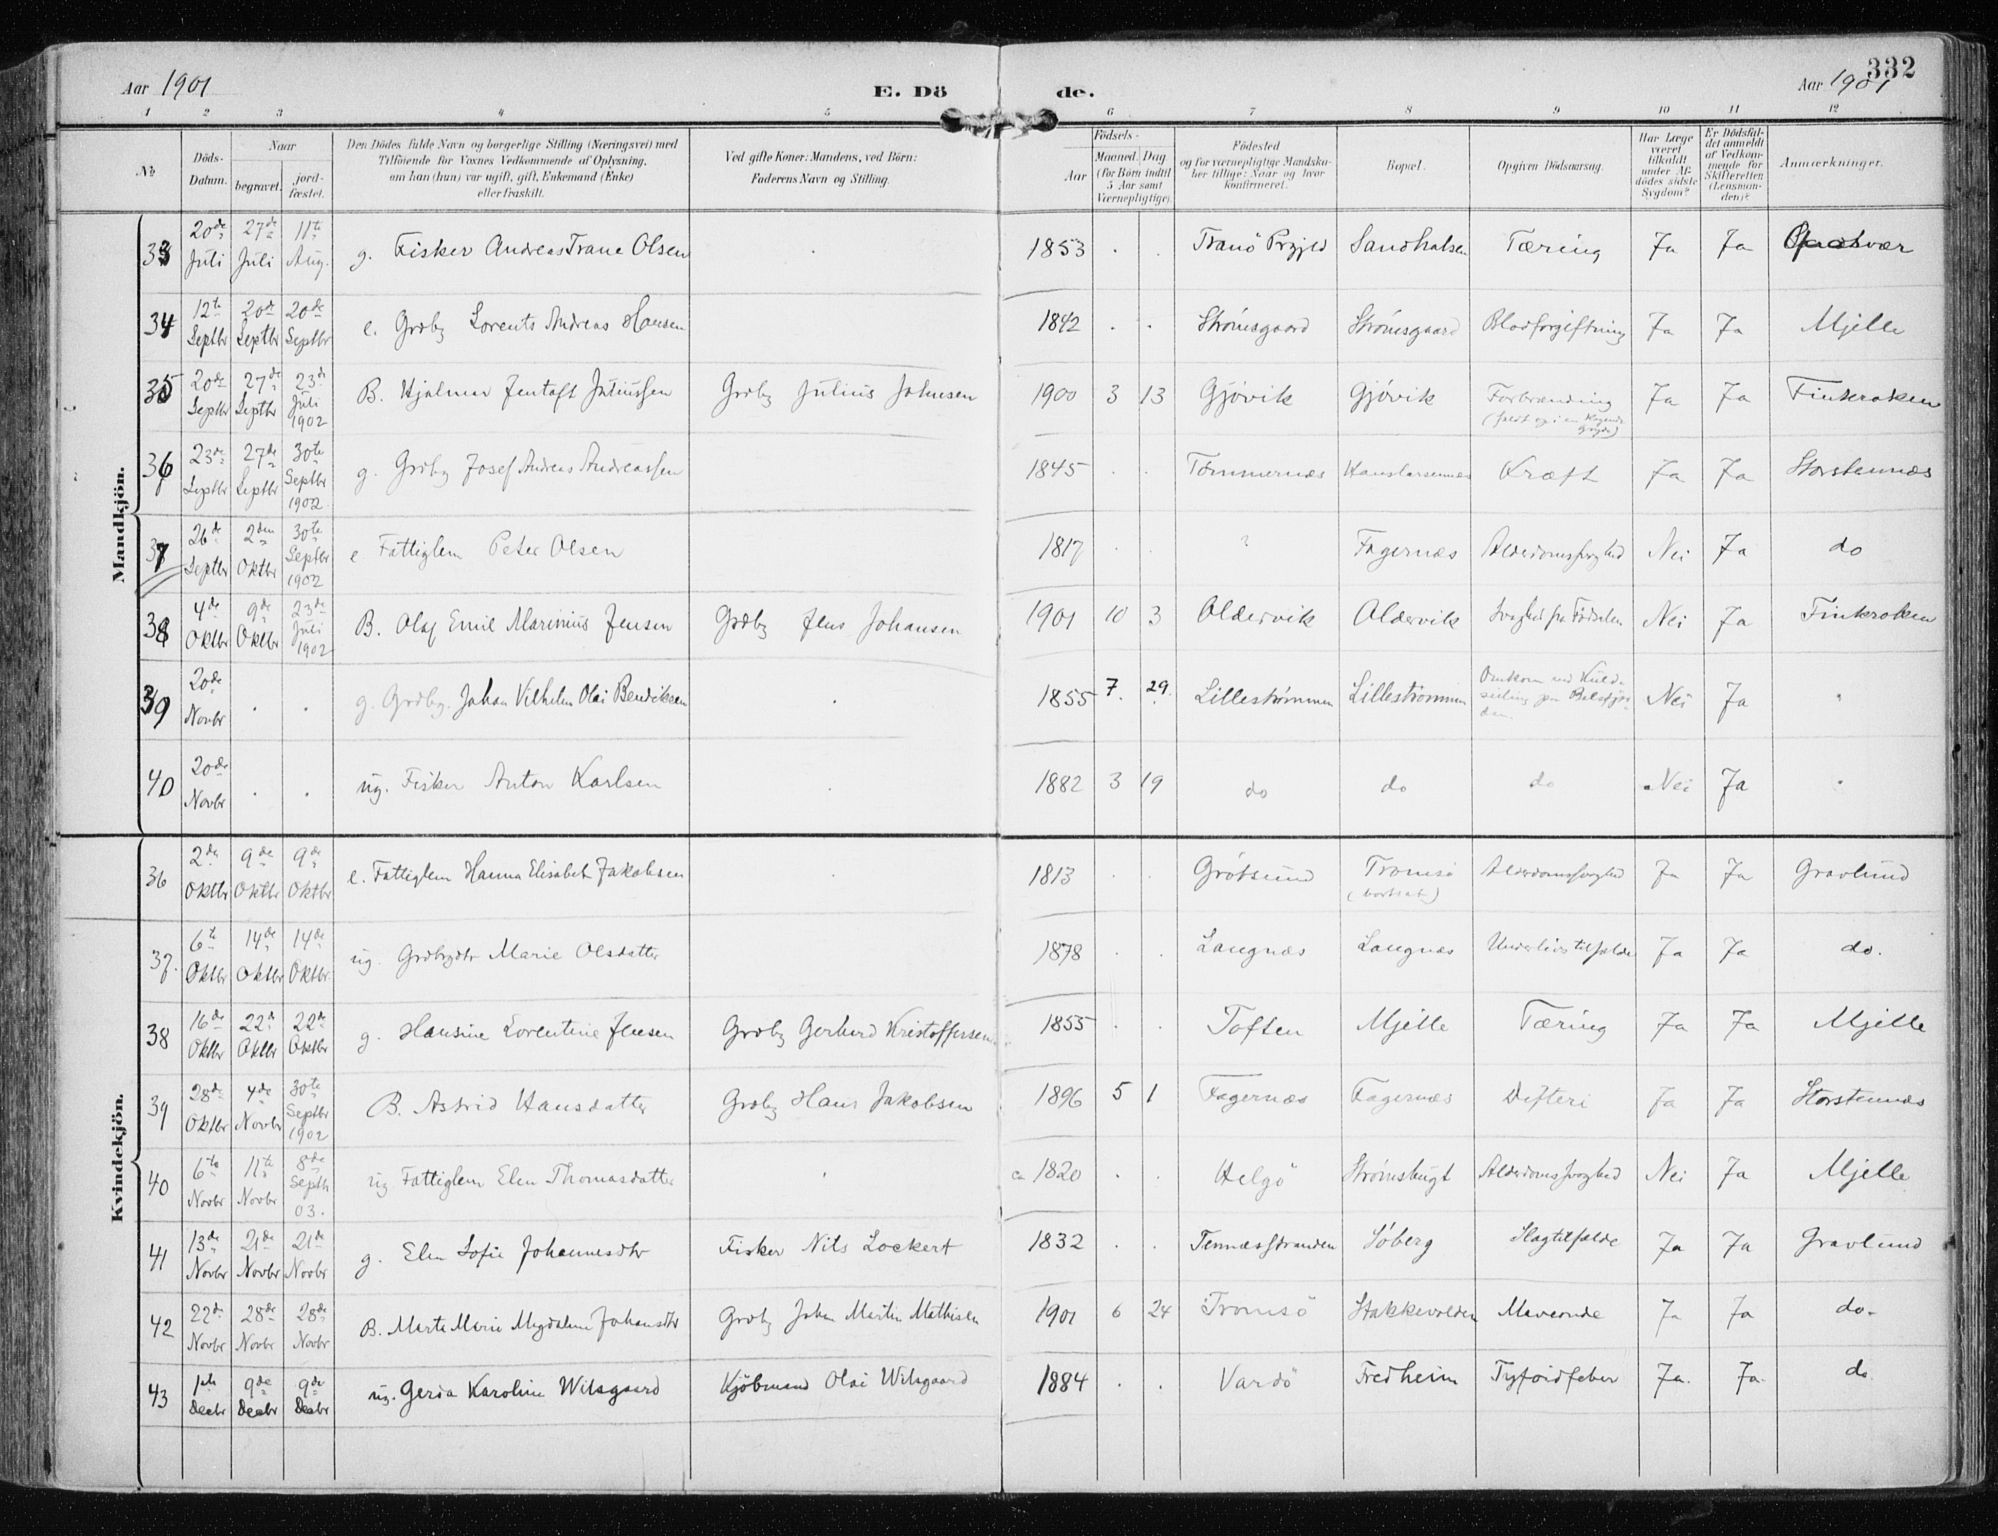 332
Aar 1901 E. Dö de. Aar 1901
1 2 3 4 5 6 7 8 9 10 11 12
No Döds-Datum. Naar begravet. jord-fæstet. Den Dödes fulde Navn og borgerlige Stilling (Næringsvei) med Tilföiende for Voxnes Vedkommende af Oplysning, om han (hun) var ugift, gift, Enkemand (Enke) eller fraskilt. Ved gifte Koner: Mandens, ved Börn: Faderens Navn og Stilling. Födsels- Aar Maaned. Dag (for Börn indtil 5 Aar samt Værnepligtige). Födested og for værnepligtige Mandska-ber tillige: Naar og hvor konfirmeret. Bopæl. Opgiven Dödsaarsag. Har Læge været tilkaldt under Af-dödes sidste Sygdom? Er Dödsfal-det anmeldt af Vedkom-mende for Skifteretten (Lensman-den)? Anmærkninger.
Mandkjön.
33 20de Juli 27de Juli 11te Aug. g. Fisker Andreas Trane Olsen 1853 Tranö Prgjeld Sandhalsen Tæring Ja Ja
34 12te Septbr 20de Septbr 20de Septbr e. Grdbr Lorents Andreas Hansen 1842 Strömsgaard Strömsgaard Blodforgiftning Ja Ja Mjelle
35 20de Septbr 27de Septbr 23de Juli 1902 B. Hjalmar Jentoft Juliussen Grdbr Julius Johnsen 1900 3 13 Gjövik Gjövik Forbrænding (faldt op i en kogende Gryde) Ja Ja Finkroken
36 23de Septbr 27de Septbr 30te Septbr 1902 g. Grdbr Josef Andreas Andreassen 1845 Tömmernæs Hanslarsennæs Kræft Ja Ja Storstennæs
37 26de Septbr 2den Oktbr 30te Septbr 1902 e Fattiglem Peter Olsen 1817 ? Fagernæs Alderdomssvaghed Nei Ja do
38 4de Oktbr 9de Oktbr 23de Juli 1902 B. Olaf Emil Marinius Jensen Grdbr Jens Johansen 1901 10 3 Oldervik Oldervik Svaghed fra Födselen Nei Ja Finkroken
39 20de Novbr g. Grdbr. Johan Vilhelm Olai Bendiksen 1855 7. 29. Lilleströmmen Lilleströmmen Omkom ved Kuld-seiling paa Balsfjor-den Nei Ja
40 20de Novbr ug. Fisker Anton Karlsen 1882 3 19 do do do Nei Ja
Kvindekjön.
36 2de Oktbr 9de Oktbr 9de Oktbr e. Fattiglem Hanna Elisabet Jakobsen 1813 Grötsund Tromsö (bortsat) Alderdomssvaghed Ja Ja Gravlund
37. 6te Oktbr 14de Oktbr 14de Oktbr ug. Grdbrdtr Marie Olsdatter 1878 Langnæs Langnæs Underlivstilfælde Ja Ja do.
38 16de Oktbr 22de Oktbr 22de Oktbr g. Hansine Lorentine Jensen Grdbr Gerhard Kristoffersen 1855 Toften Mjelle Tæring Ja Ja Mjelle
39 28de Oktbr 4de Novbr 30te Septbr 1902 B. Astrid Hansdatter Grdbr Hans Jakobsen 1896 5 1 Fagernæs Fagernæs Difteri Ja Ja Storstennæs
40 6te Novbr 11te Novbr 8de Septb 03. ug Fattiglem Elen Thomasdatter ca 1820 Helgö Strömsbugt Alderdomssvaghed Nei Ja Mjelle
41 13de Novbr 21de Novbr 21de Novbr g. Elen Sofie Johannesdtr Fisker Nils Lockert 1832 Tennæsstranden Söberg Slagtilfælde Ja Ja Gravlund
42 22de Novbr 28de Novbr 28de Novbr B. Marta Marie Magdalena Johansdtr Grdbr Johan Martin Mathisen 1901 6 24 Tromsö Stakkevolden Maveonde Ja Ja do.
43 1ste Decbr 9de Decbr 9de Decbr ug. Gerda Karoline Wilsgaard Kjöbmand Olai Wilsgaard 1884 Vardö Fredheim Tyfoidfeber Ja. Ja. do.